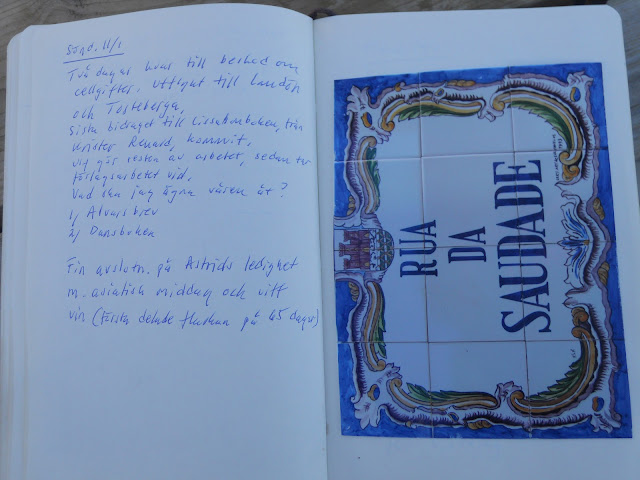 Sönd. 11/1
Två dagar kvar till besked om
cellgifter. Utflykt till Landön
och Tosteberga.
Sista bidraget till Lissabonboken, från
Krister Renard, kommit.
Jag gör resten av arbetet, sedan tar
förlagsarbetet vid.
Vad ska jag ägna våren åt?
1/ Alvars brev
2/ Dansboken
Fin avslutn. på Astrids ledighet
m. asiatisk middag och vitt
vin (första delade flaskan på 45 dagar)
RUA
DA
SAUDADE